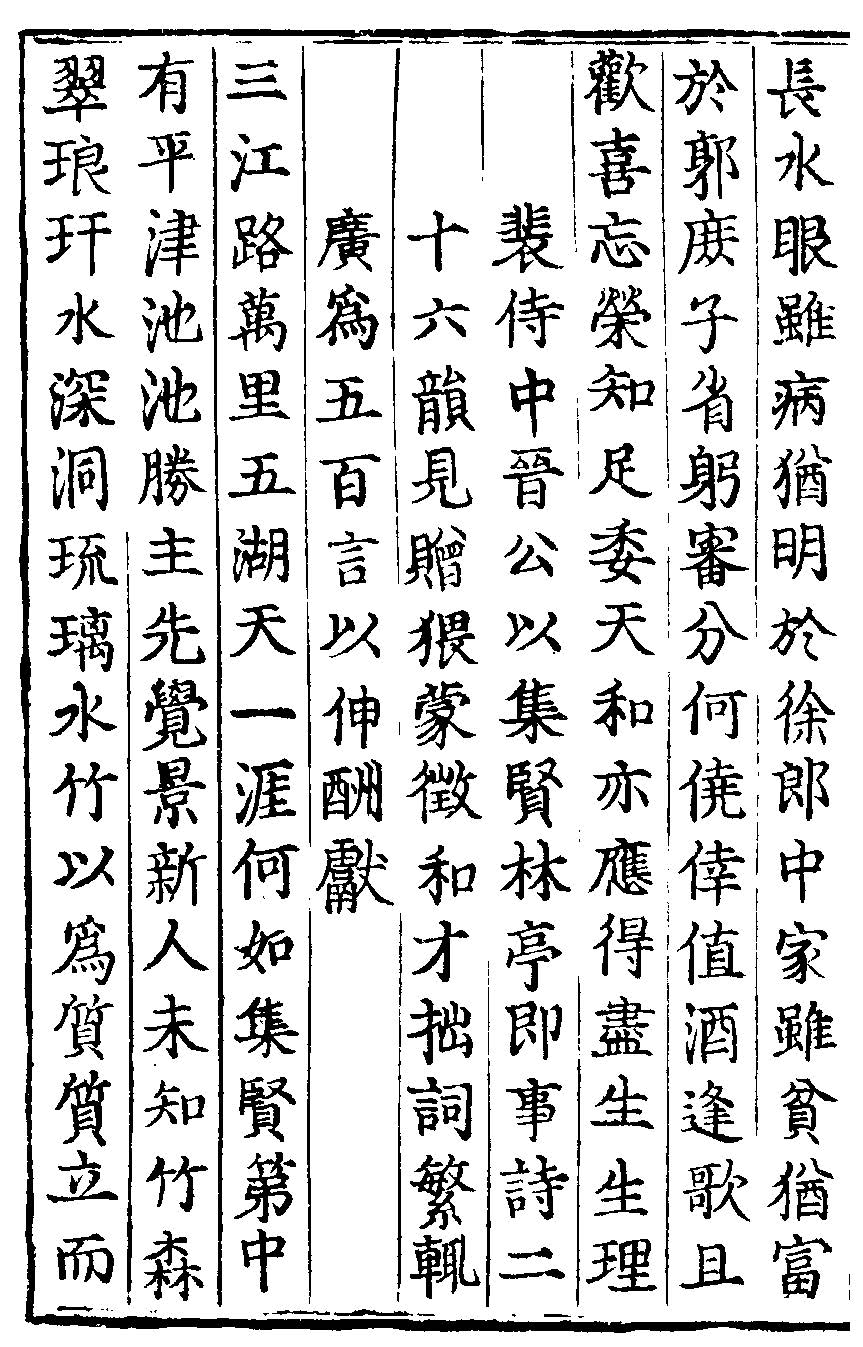 長水眼雖病猶明於徐郎中家雖貧猶富
於郭庻子省躬審分何僥倖值酒逢歌且
歡喜忘榮知足委天和亦應得盡生生理
裴侍中晉公以集賢林亭即事詩二
十六韻見贈猥蒙徵和才拙詞繁輒
廣爲五百言以伸酬獻
三江路萬里五湖天一涯何如集賢第中
有平津池池勝主先覺景新人未知竹森
翠琅玕水深洞琉璃水竹以爲質質立而